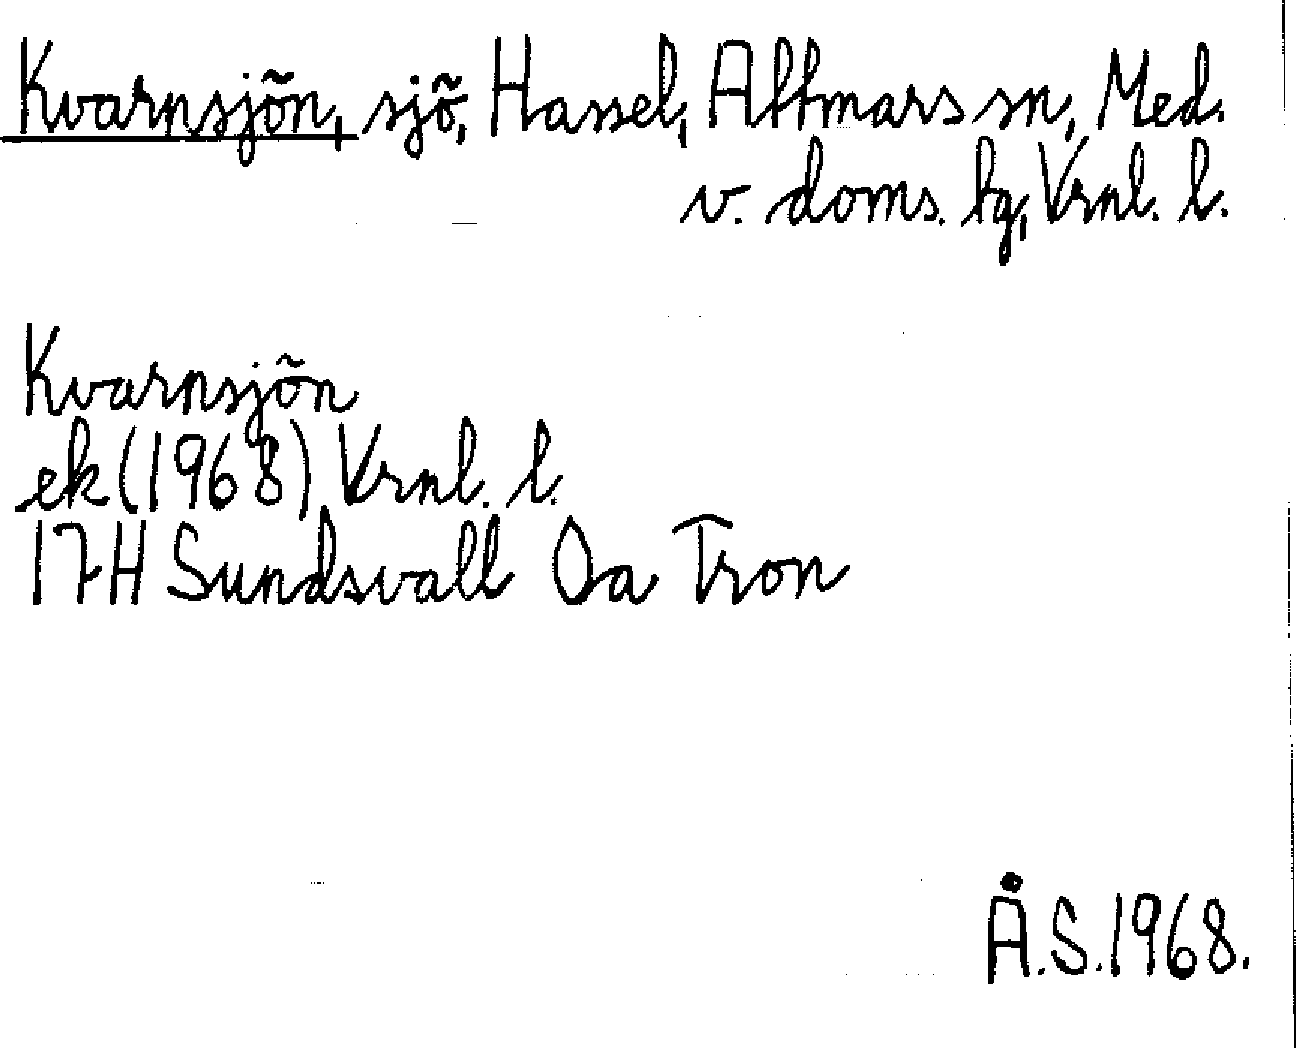 Kvarnsjön, sjö, Hassel, Attmars sn, Med.
v. doms. lg, Vrnl. l.
Kvarnsjön
ek (1968) Vrnl. l.
17H Sundsvall Oa Tron
Å.S. 1968.